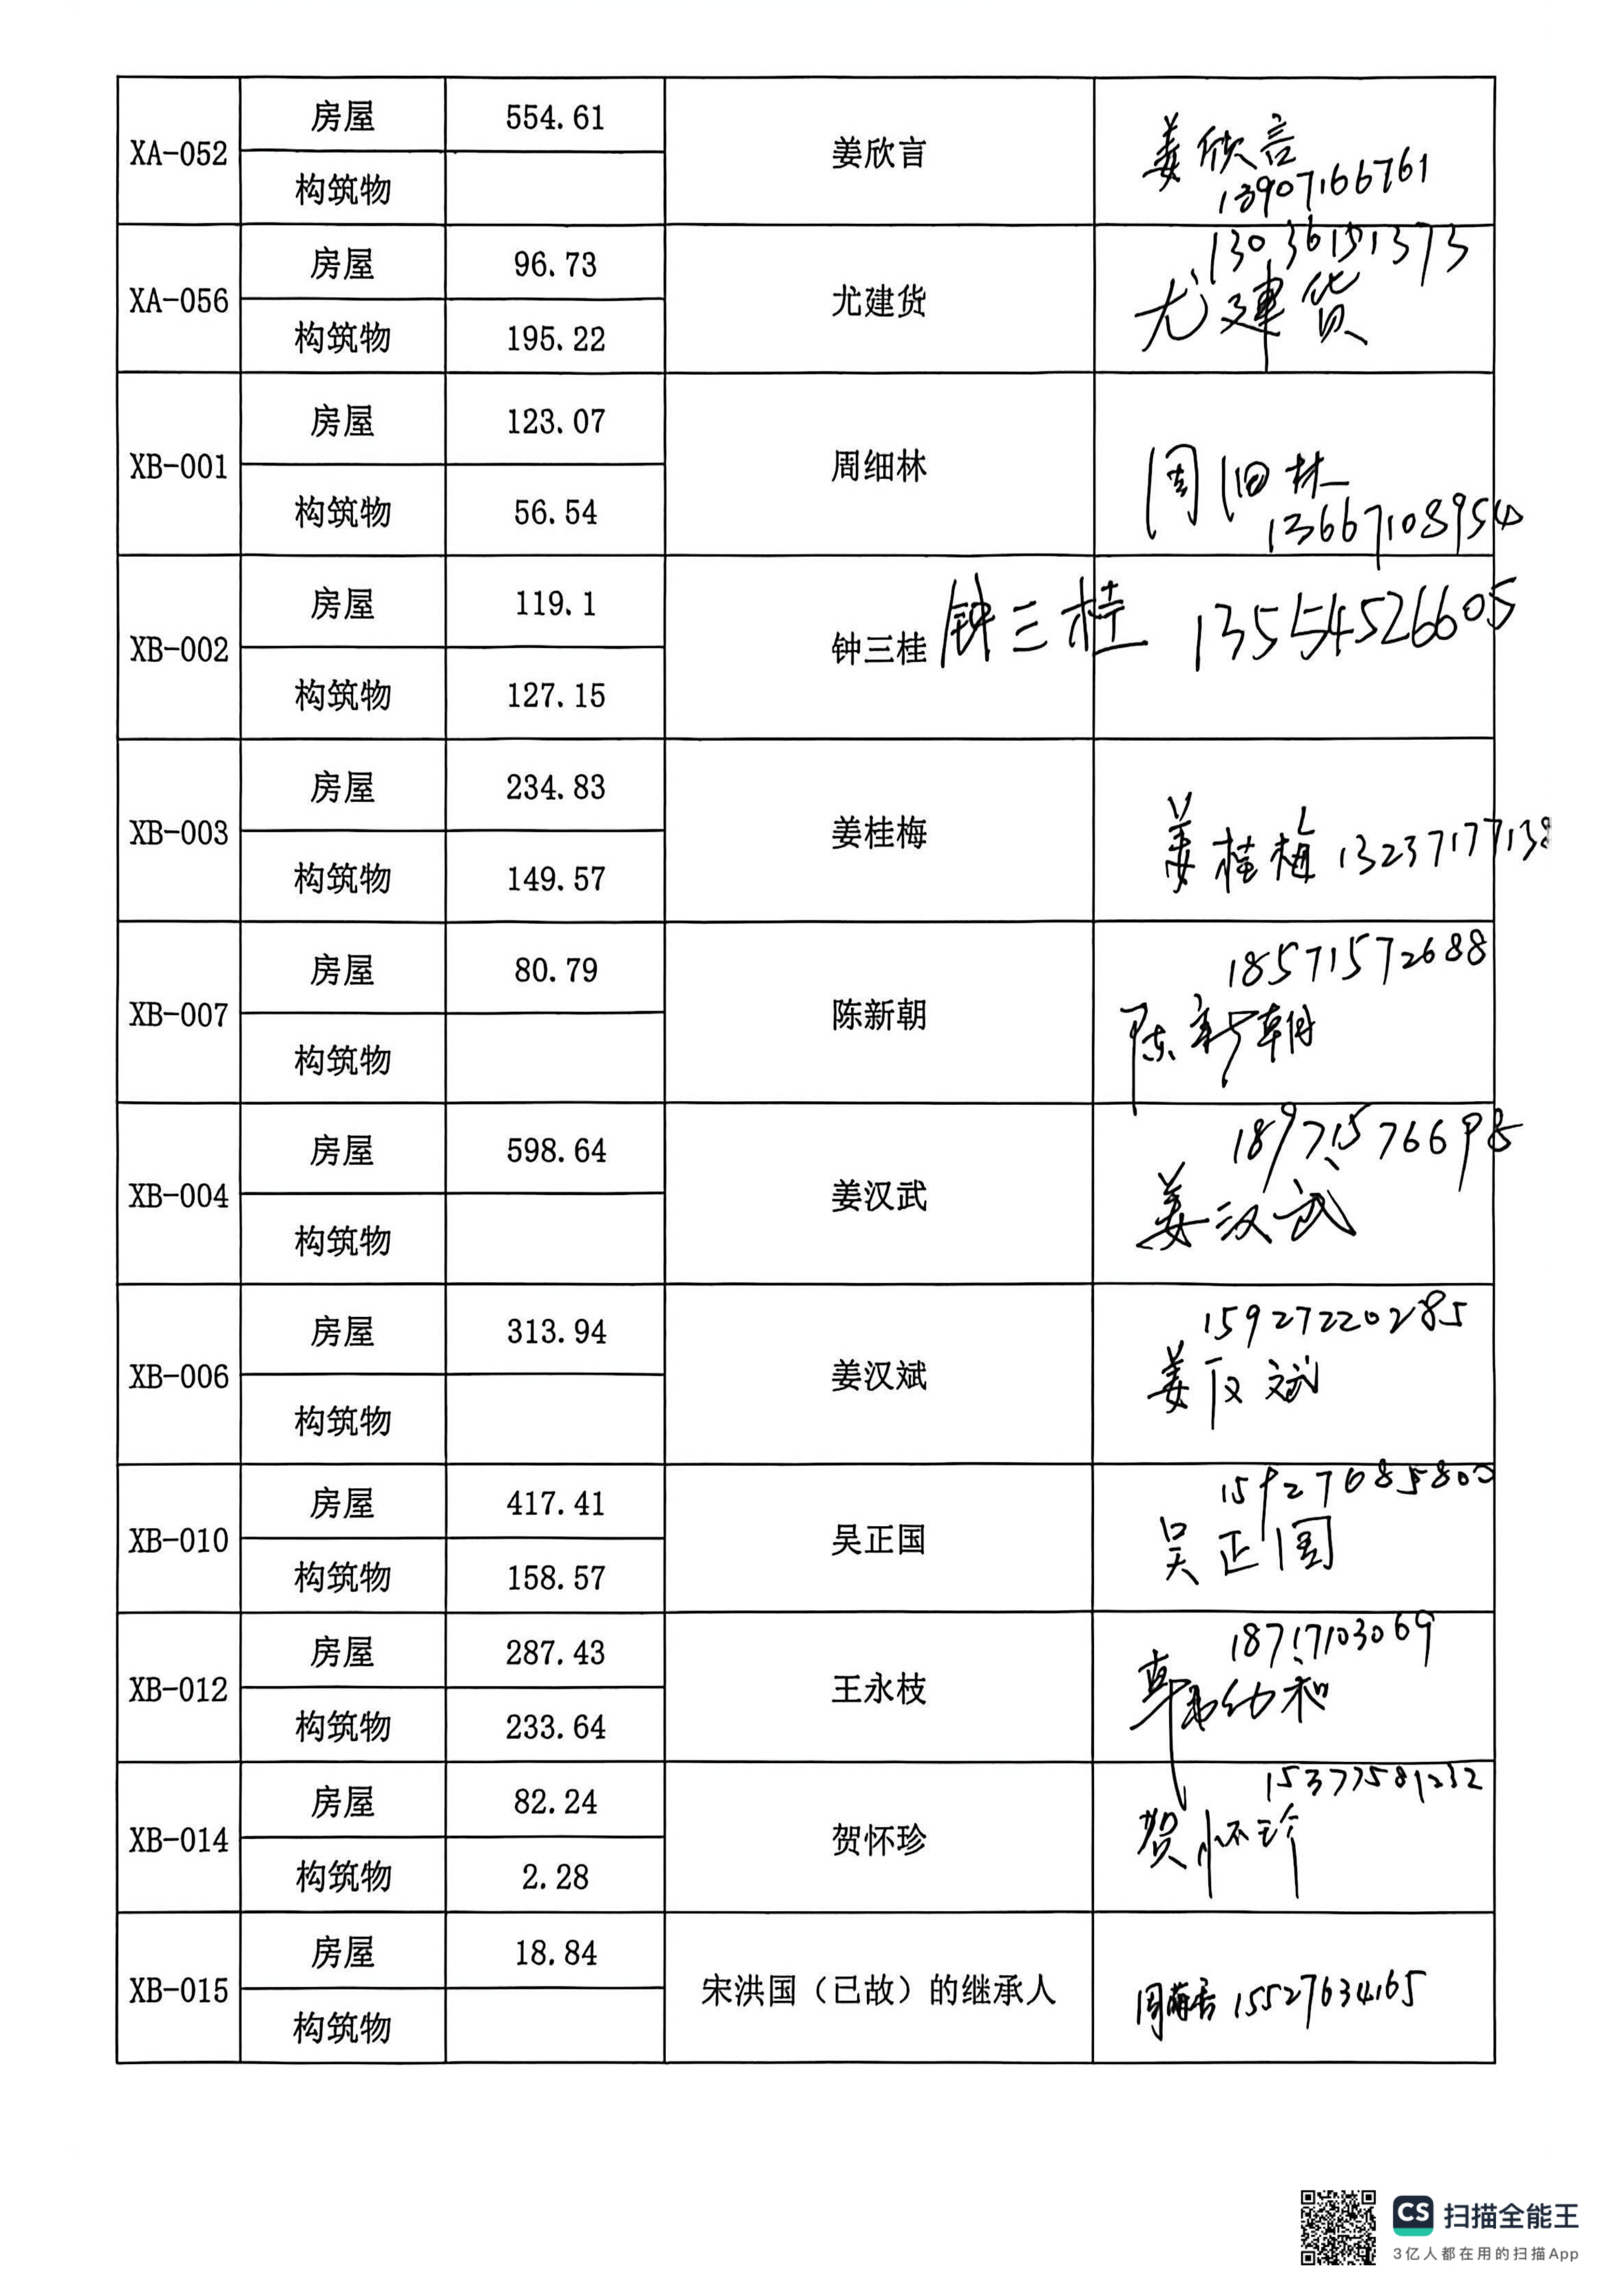 XA-052 房屋 554.61 姜欣言 姜欣言
构筑物 13907166761
XA-056 房屋 96.73 尤建货 13036151373
构筑物 195.22 尤建货
XB-001 房屋 123.07 周细林 周细林
构筑物 56.54 13667108954
XB-002 房屋 119.1 钟三桂 钟三桂 13554526605
构筑物 127.15
XB-003 房屋 234.83 姜桂梅
构筑物 149.57 姜桂梅 13237177138
XB-007 房屋 80.79 陈新朝 18571572688
构筑物 陈新朝
XB-004 房屋 598.64 姜汉武 18971576698
构筑物 姜汉武
XB-006 房屋 313.94 姜汉斌 15927220285
构筑物 姜汉斌
XB-010 房屋 417.41 吴正国
构筑物 158.57 吴正国
XB-012 房屋 287.43 王永枝 18717103069
构筑物 233.64
XB-014 房屋 82.24 贺怀珍 15377581232
构筑物 2.28 贺怀珍
XB-015 房屋 18.84 宋洪国（已故）的继承人 15527634165
构筑物
CS 扫描全能王
3亿人都在用的扫描App